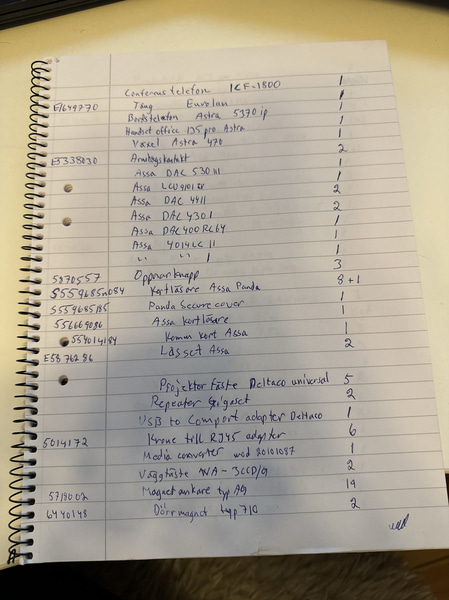 Conferens telefon KF-1800 1
E1649770 Tång Eurolan 1
Bordstelefon Astra 5370 ip 1
Handset office 135 pro Astra 1
Växel Astra 470 1
E5338030 Avvägskontakt 2
Assa DAC 530 111 1
Assa LCU9101 1
Assa DAC 4411 2
Assa DAC 430 I 2
Assa DAC400RC64 1
Assa 4014LC II 1
" " 1 1
5870557 Öppnarknapp 3
5559685n084 Kortläsare Assa Panda 8+1
5559685185 Panda Securecover 1
556669086 Assa kortläsare 1
554014184 Komm kort Assa 1
E5876286 Låsset Assa 2
Projektor fäste Deltaco universal 5
Repeater Gigaset 2
USB to Comport adapter Deltaco 1
5014172 Krone till RJ45 adapter 6
Media converter wd 20101087 1
Väggfäste WA-3CCD/9 2
5719002 Magnet ankare typ A9 19
6440148 Dörrmagnet typ 710 2